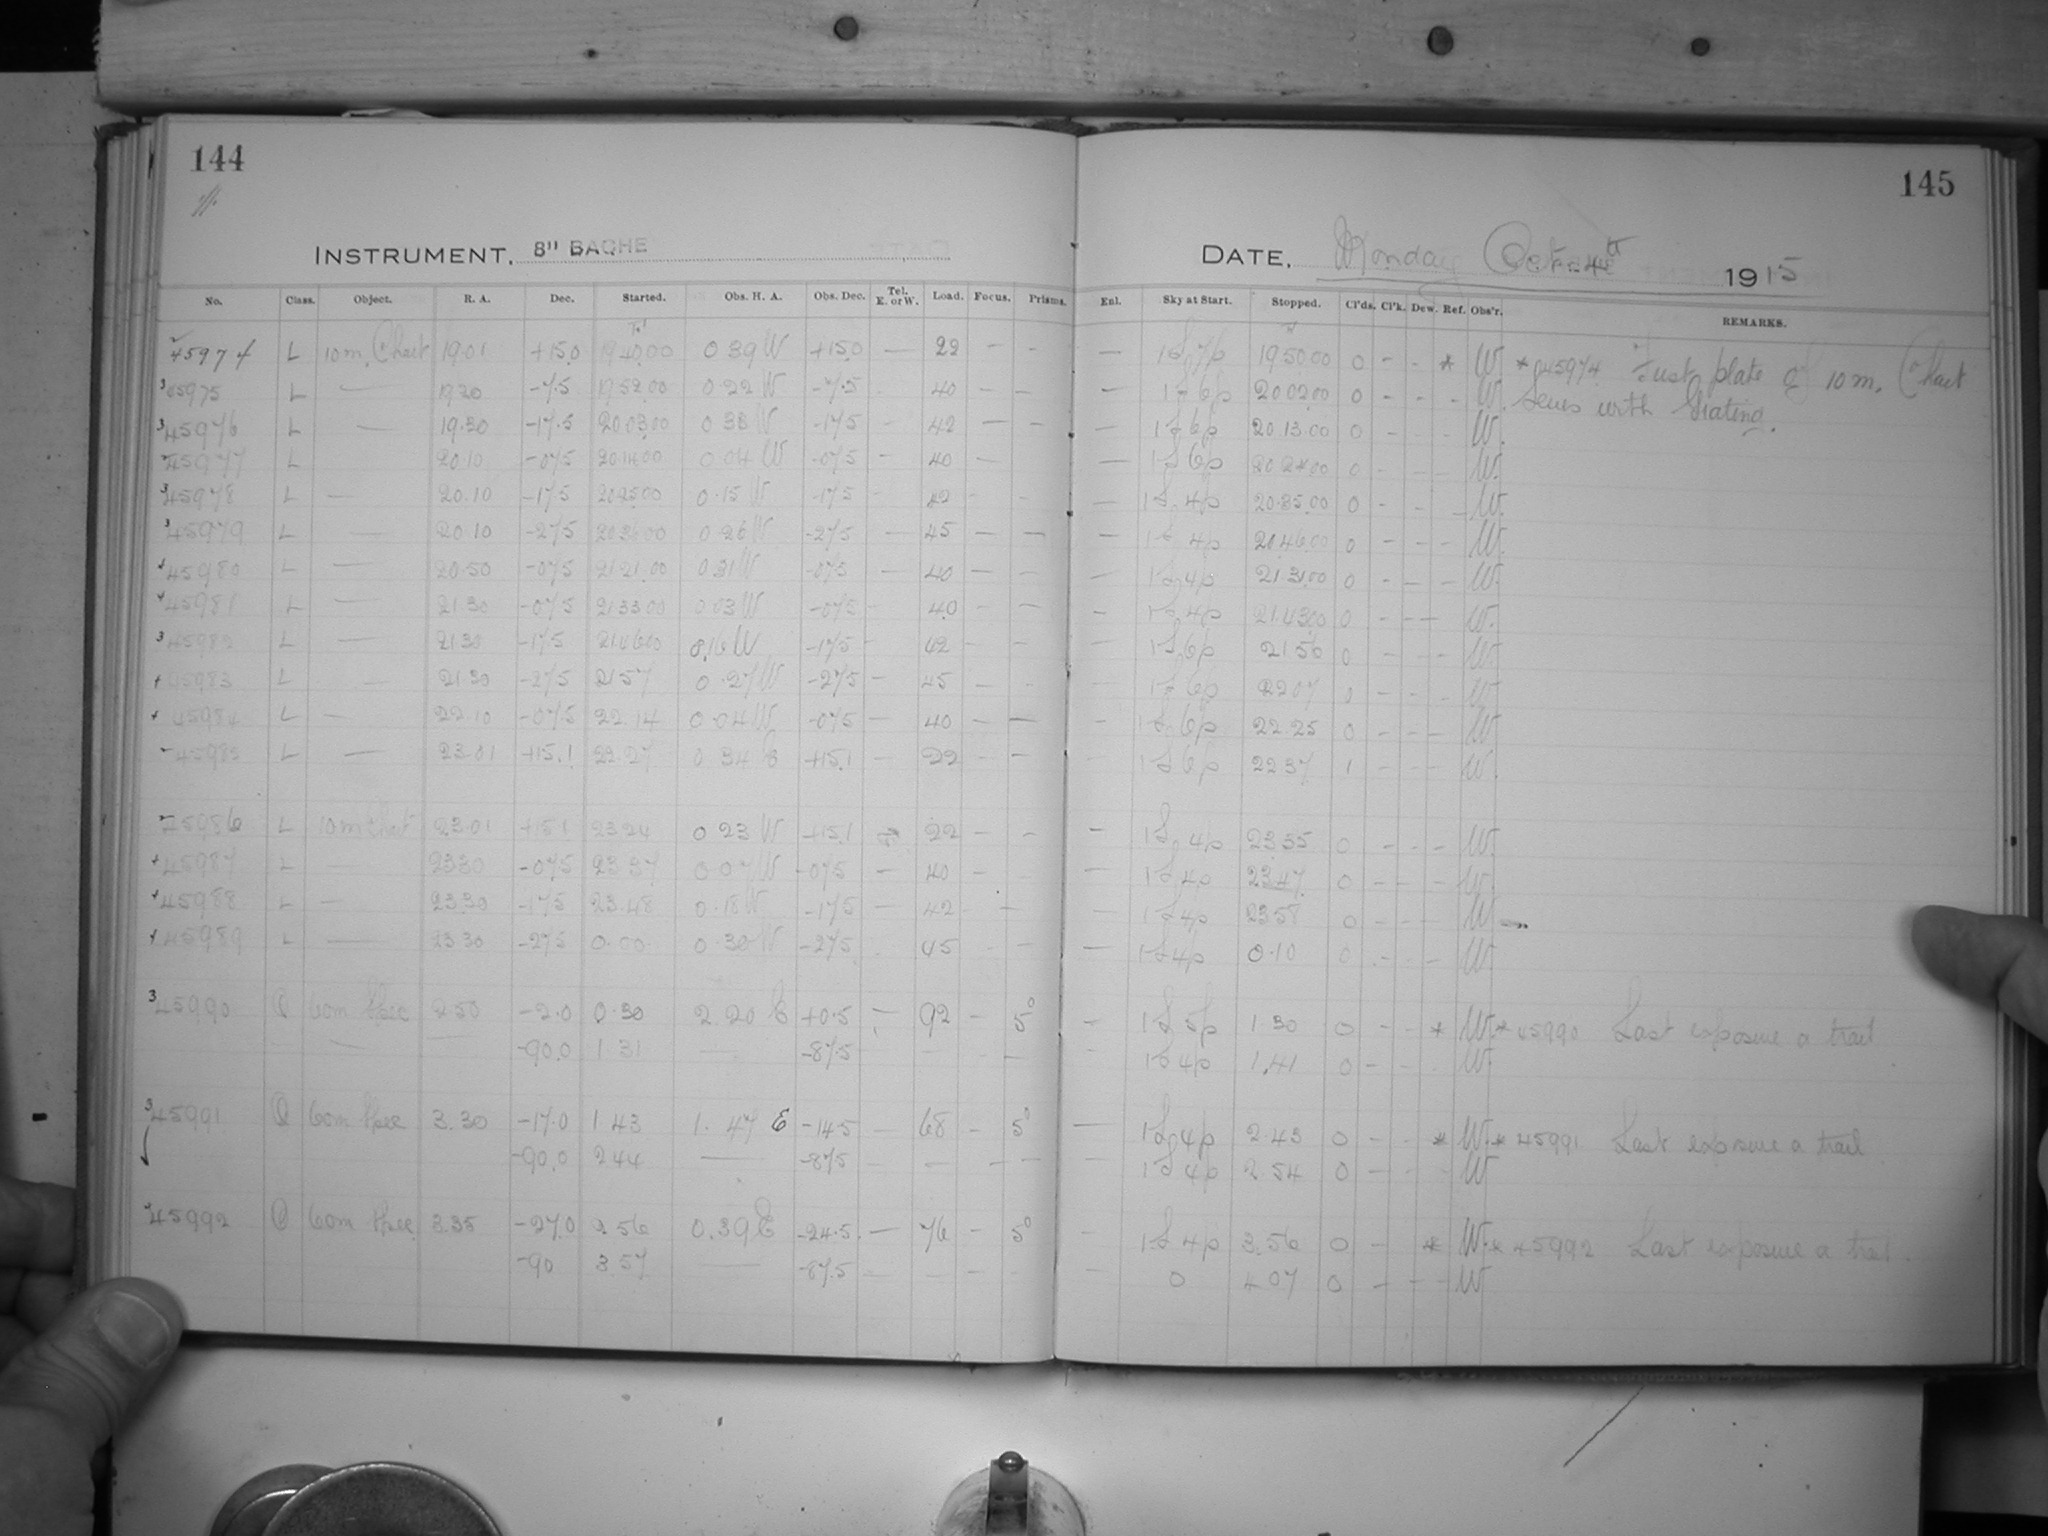 144
145
INSTRUMENT. 8" BACHE
DATE, Monday Oct. 4th 1915
No. Class. Object. R. A. Dec. Started. Obs. H. A. Obs. Dec. Tel. E. or W. Load. Focus. Prisms. Enl. Sky at Start. Stopped. Cl'ds. Cl'k. Dew. Ref. Obs'r. REMARKS.
45974 L 10 m. Chart 19.01 +15.0 19.40.00 0 39 W +15.0 — 22 - - — 19.50.00 0 - - * W. * 45974 First plate of 10 m. Chart
45975 L — 19.20 -7.5 19.52.00 0.22 W -7.5 — 40 — — — 20 02 00 0 - - - W. Series with Grating.
45976 L — 19.30 -17.5 20.03.00 0 38 W -17.5 — 42 — — — 20 13.00 0 - - - W.
45977 L 20.10 -07.5 20.14.00 0.04 W -07.5 - 40 — — 20 24 00 0 - - - W.
45978 L — 20.10 -17.5 20.25.00 0.15 W -17.5 - 42 - - — 20.35.00 0 - - - W.
45979 L — 20.10 -27.5 20.36.00 0.26 W -27.5 — 45 — — — 20.46.00 0 - - - W.
45980 L — 20.50 -07.5 21.21.00 0 31 W -07.5 — 40 — - — 21 31.00 0 - - - W.
45981 L — 21 30 -07.5 21 33 00 0.03 W -07.5 - 40 - - - 21.43.00 0 - - — W.
45982 L — 21.30 -17.5 21.46.00 0.16 W -17.5 - 42 - - - 21 56 0 - - - W.
45983 L — 21 30 -27.5 21 57 0.27 W -27.5 - 45 — - - 22 07 0 - - - W.
45984 L — 22.10 -07.5 22.14 0 04 W -07.5 — 40 - — - 22.25 0 - - - W
45985 L — 23.01 +15.1 22.27 0 34 E +15.1 - 22 - - - 22 37 1 - - - W.
45986 L 10 m Chart 23.01 +15.1 23.24 0 23 W +15.1 22 - - — 23.35 0 - - - W.
45987 L — 23.30 -07.5 23.37 0 07 W -07.5 — 40 - - — 23.47 0 - - - W.
45988 L — 23.30 -17.5 23.48 0.18 W -17.5 — 42 - — — 23.58 0 - - - W
45989 L — 23 30 -27.5 0.00 0.30 W -27.5 45 - - — 0.10 0 - - - W.
45990 60m Spec 2.50 -2.0 0.30 2.20 E +0.5 — 92 - 5° - 1.30 0 - - * W. * 45990 Last exposure a trail
-90.0 1.31 — -87.5 - - - — - 1.41 0 - - - W.
45991 60m Spec 3.30 -17.0 1.43 1.47 E -14.5 — 68 - 5° — 2.43 0 - - * W. * 45991 Last exposure a trail
-90.0 2.44 — -87.5 - — - - - 2.54 0 - - - W
45992 60m Spec 3.35 -27.0 2.56 0.39 E -24.5 — 76 - 5° - 3.56 0 - - * W. * 45992 Last exposure a trail.
-90 3.57 — -87.5 - - - - — 0 4.07 0 - - - W